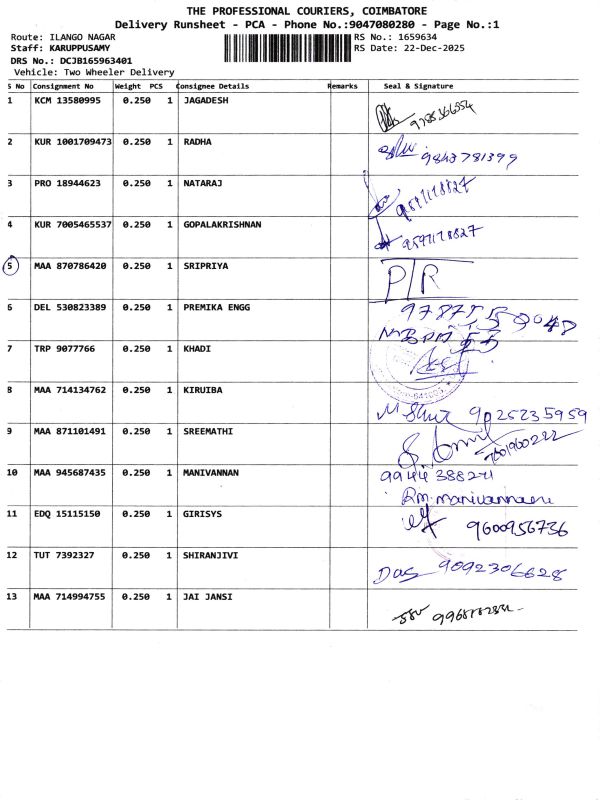 THE PROFESSIONAL COURIERS, COIMBATORE
Delivery Runsheet - PCA - Phone No.:9047080280 - Page No.:1
Route: ILANGO NAGAR RS No.: 1659634
Staff: KARUPPUSAMY RS Date: 22-Dec-2025
DRS No.: DCJB165963401
Vehicle: Two Wheeler Delivery
S No Consignment No Weight PCS Consignee Details Remarks Seal & Signature
1 KCM 13580995 0.250 1 JAGADESH
2 KUR 1001709473 0.250 1 RADHA 9843781399
3 PRO 18944623 0.250 1 NATARAJ 9597178827
4 KUR 7005465537 0.250 1 GOPALAKRISHNAN 9597178827
5 MAA 870786420 0.250 1 SRIPRIYA P/R
6 DEL 530823389 0.250 1 PREMIKA ENGG
7 TRP 9077766 0.250 1 KHADI
8 MAA 714134762 0.250 1 KIRUIBA 9025235959
9 MAA 871101491 0.250 1 SREEMATHI
10 MAA 945687435 0.250 1 MANIVANNAN 9944388271
Rm. manivannan
11 EDQ 15115150 0.250 1 GIRISYS 9600956736
12 TUT 7392327 0.250 1 SHIRANJIVI Das 9092306628
13 MAA 714994755 0.250 1 JAI JANSI